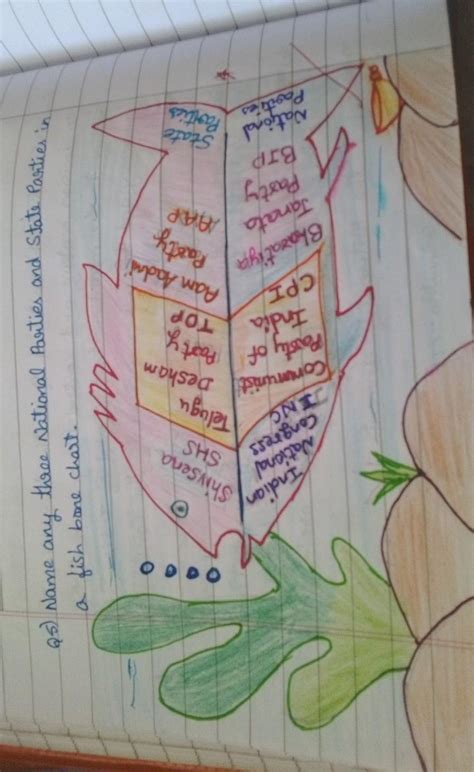 Q5) Name any three National Parties and State Parties in
a fish bone chart.
Shivsena
SHS
Telugu
Desham
Party
TDP
Aam Aadmi
Party
AAP
State
Parties
Indian
National
Congress
INC
Communist
Party of
India
CPI
Bharatiya
Janata
Party
BJP
National
Parties